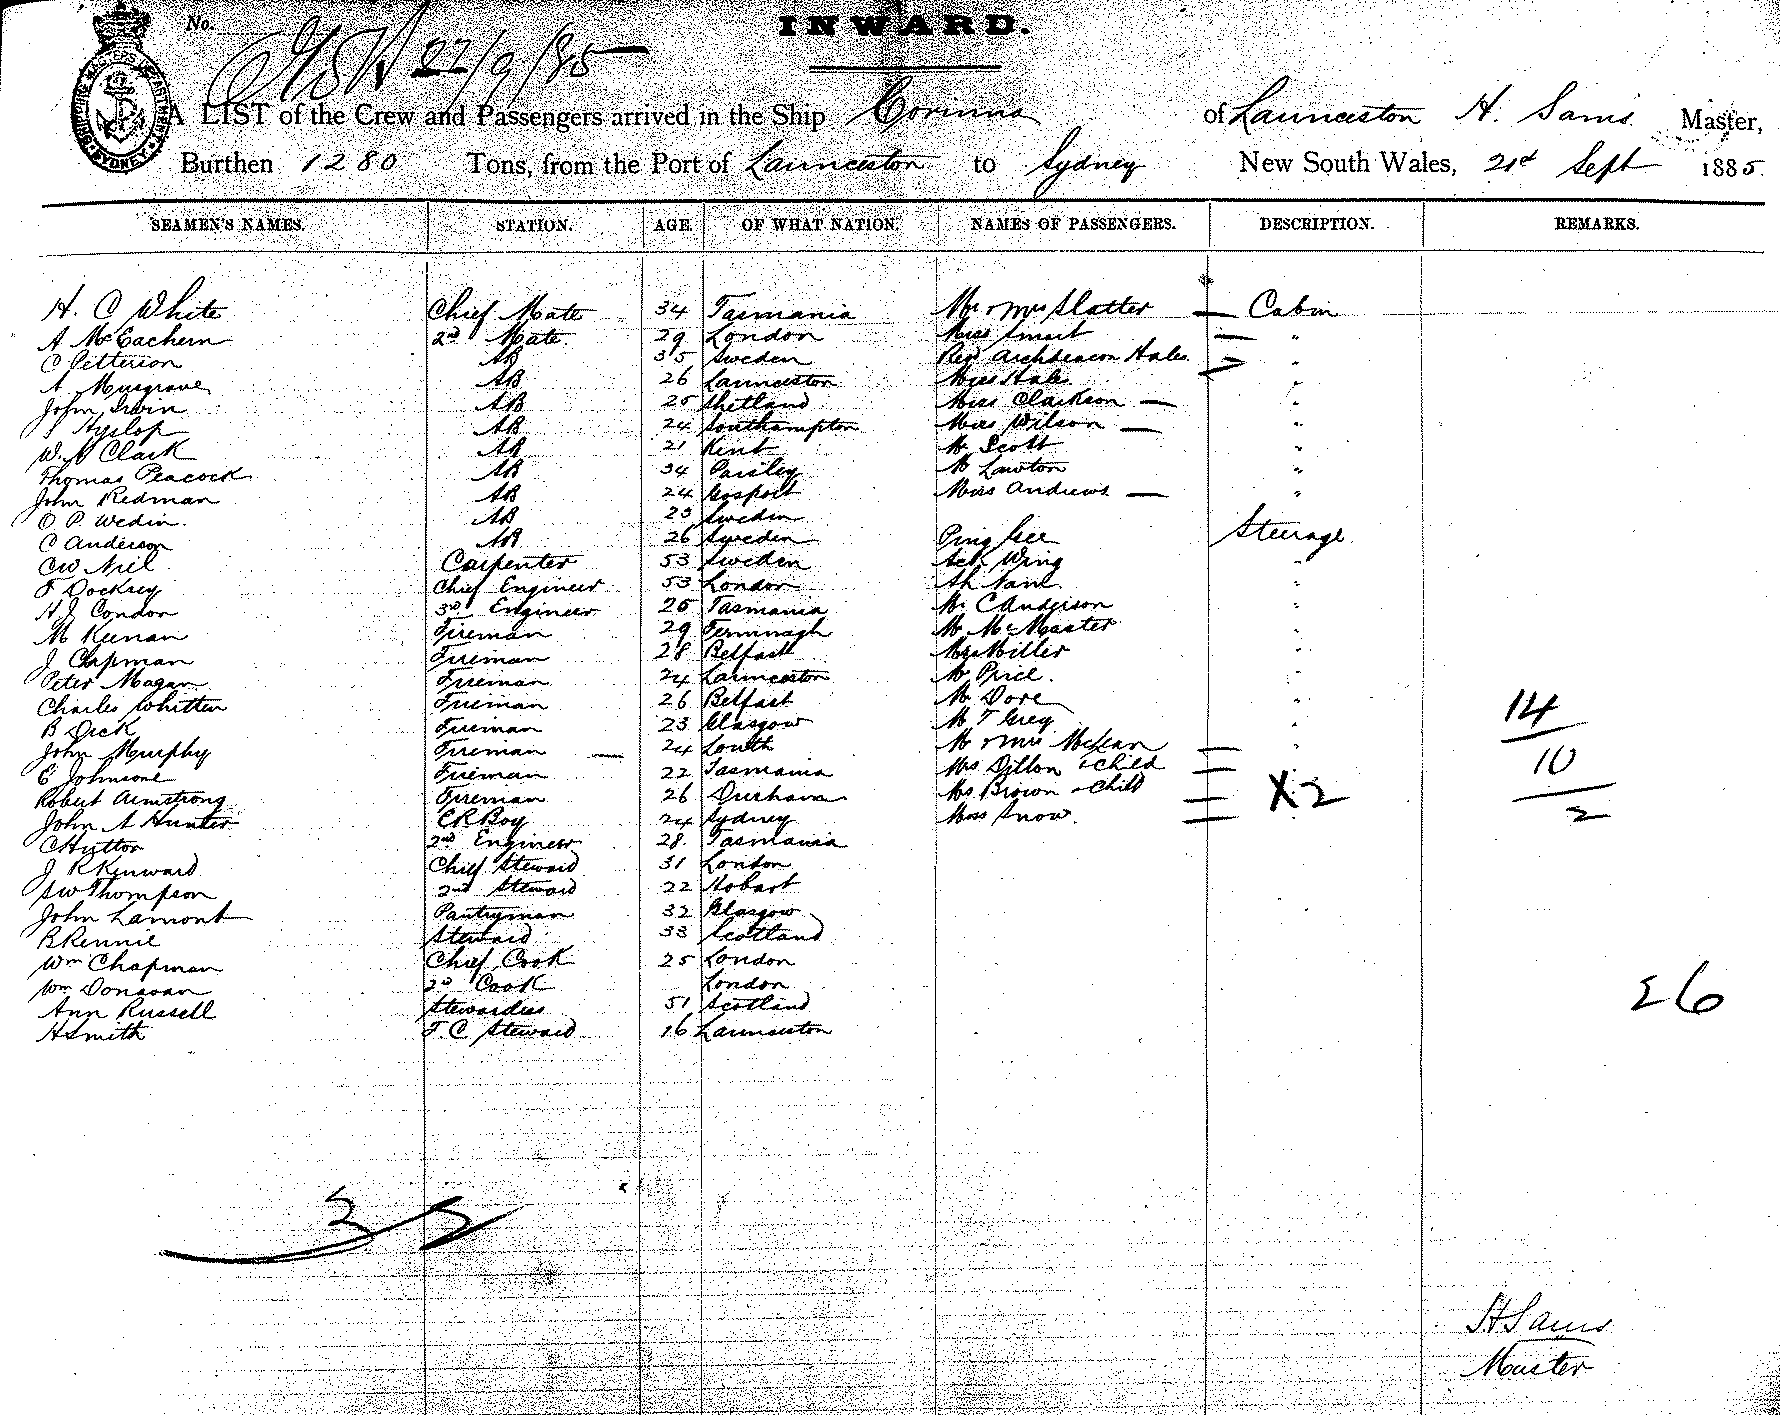 No.
INWARD.
22/9/85
A LIST of the Crew and Passengers arrived in the Ship Corinna of Launceston H. Sams Master,
Burthen 1280 Tons, from the Port of Launceston to Sydney New South Wales, 21st Sept 1885.
SEAMEN'S NAMES. STATION. AGE. OF WHAT NATION. NAMES OF PASSENGERS. DESCRIPTION. REMARKS.
H. C White Chief Mate 34 Tasmania Mr & Mrs Slatter — Cabin
A McEachern 2nd Mate 29 London Miss Smart — "
C Petterson AB 35 Sweden Rev Archdeacon Hales "
A Musgrave AB 26 Launceston Miss Hales "
John Irwin AB 25 Shetland Miss Clarkson — "
J Hyslop AB 24 Southampton Miss Wilson — "
W. A Clark AB 21 Kent Mr Scott "
Thomas Peacock AB 34 Paisley Mr Lawton "
John Redman AB 24 Gosport Miss Andrews — "
O P. Wedin AB 23 Sweden
C Anderson AB 26 Sweden Ping Gee Steerage
CW Niel Carpenter 53 Sweden Ach Wing "
F Dockrey Chief Engineer 53 London Ah "
H J Condon 3rd Engineer 25 Tasmania Mr C Anderson "
M Keenan Fireman 29 Fermanagh Mr McMaster "
J Chapman Fireman 28 Belfast Mrs Miller "
Peter Magan Fireman 24 Launceston Mr Price "
Charles Whitten Fireman 26 Belfast Mr Dore "
B Dick Fireman 23 Glasgow Mr T Grey " 14
John Murphy Fireman — 24 Louth Mr & Mrs McLean — "
E Johnsone Fireman 22 Tasmania Mrs Dillon & Child — 10
Robert Armstrong Fireman 26 Durham Mrs Brown & Child — X2
John A Hunter ER Boy 24 Sydney Miss Snow — 2
C Hutton 2nd Engineer 28 Tasmania
J R Kenward Chief Steward 31 London
SW Thompson 2nd Steward 22 Hobart
John Lamont Pantryman 32 Glasgow
R Rennie Steward 33 Scotland
Wm Chapman Chief Cook 25 London
Wm Donavan 2nd Cook London
Ann Russell Stewardess 51 Scotland
H Smith F. C Steward 16 Launceston
26
H Sams
Master